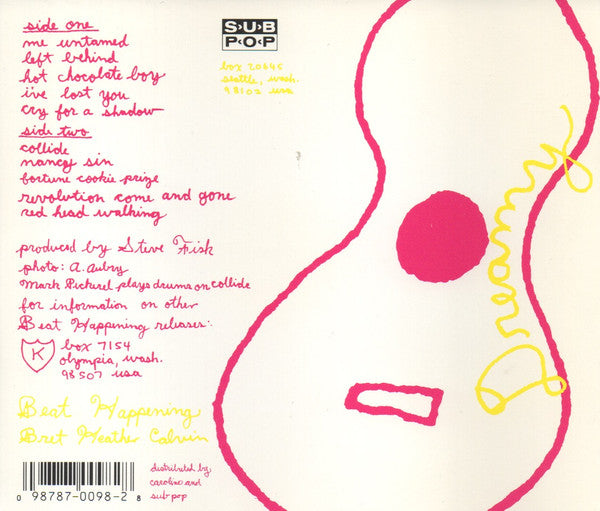 side one
me untamed
left behind
hot chocolate boy
i've lost you
cry for a shadow
side two
collide
nancy sin
fortune cookie prize
revolution come and gone
red head walking
produced by Steve Fisk
photo: A. Aubry
Mark Pickerel plays drums on collide
for information on other
Beat Happening releases:
K
box 7154
olympia, wash.
98507 usa
Beat Happening
Bret Heather Calvin
0 98787-0098-2 8
distributed by
caroline and
sub pop
SUB
POP
box 20645
seattle, wash.
98102 usa
Dreamy